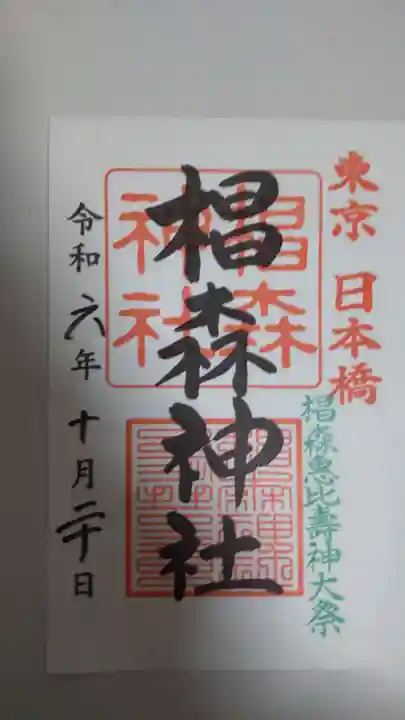 東京 日本橋
椙森惠比壽神大祭
椙森神社
椙森神社
令和六年 十月二十日